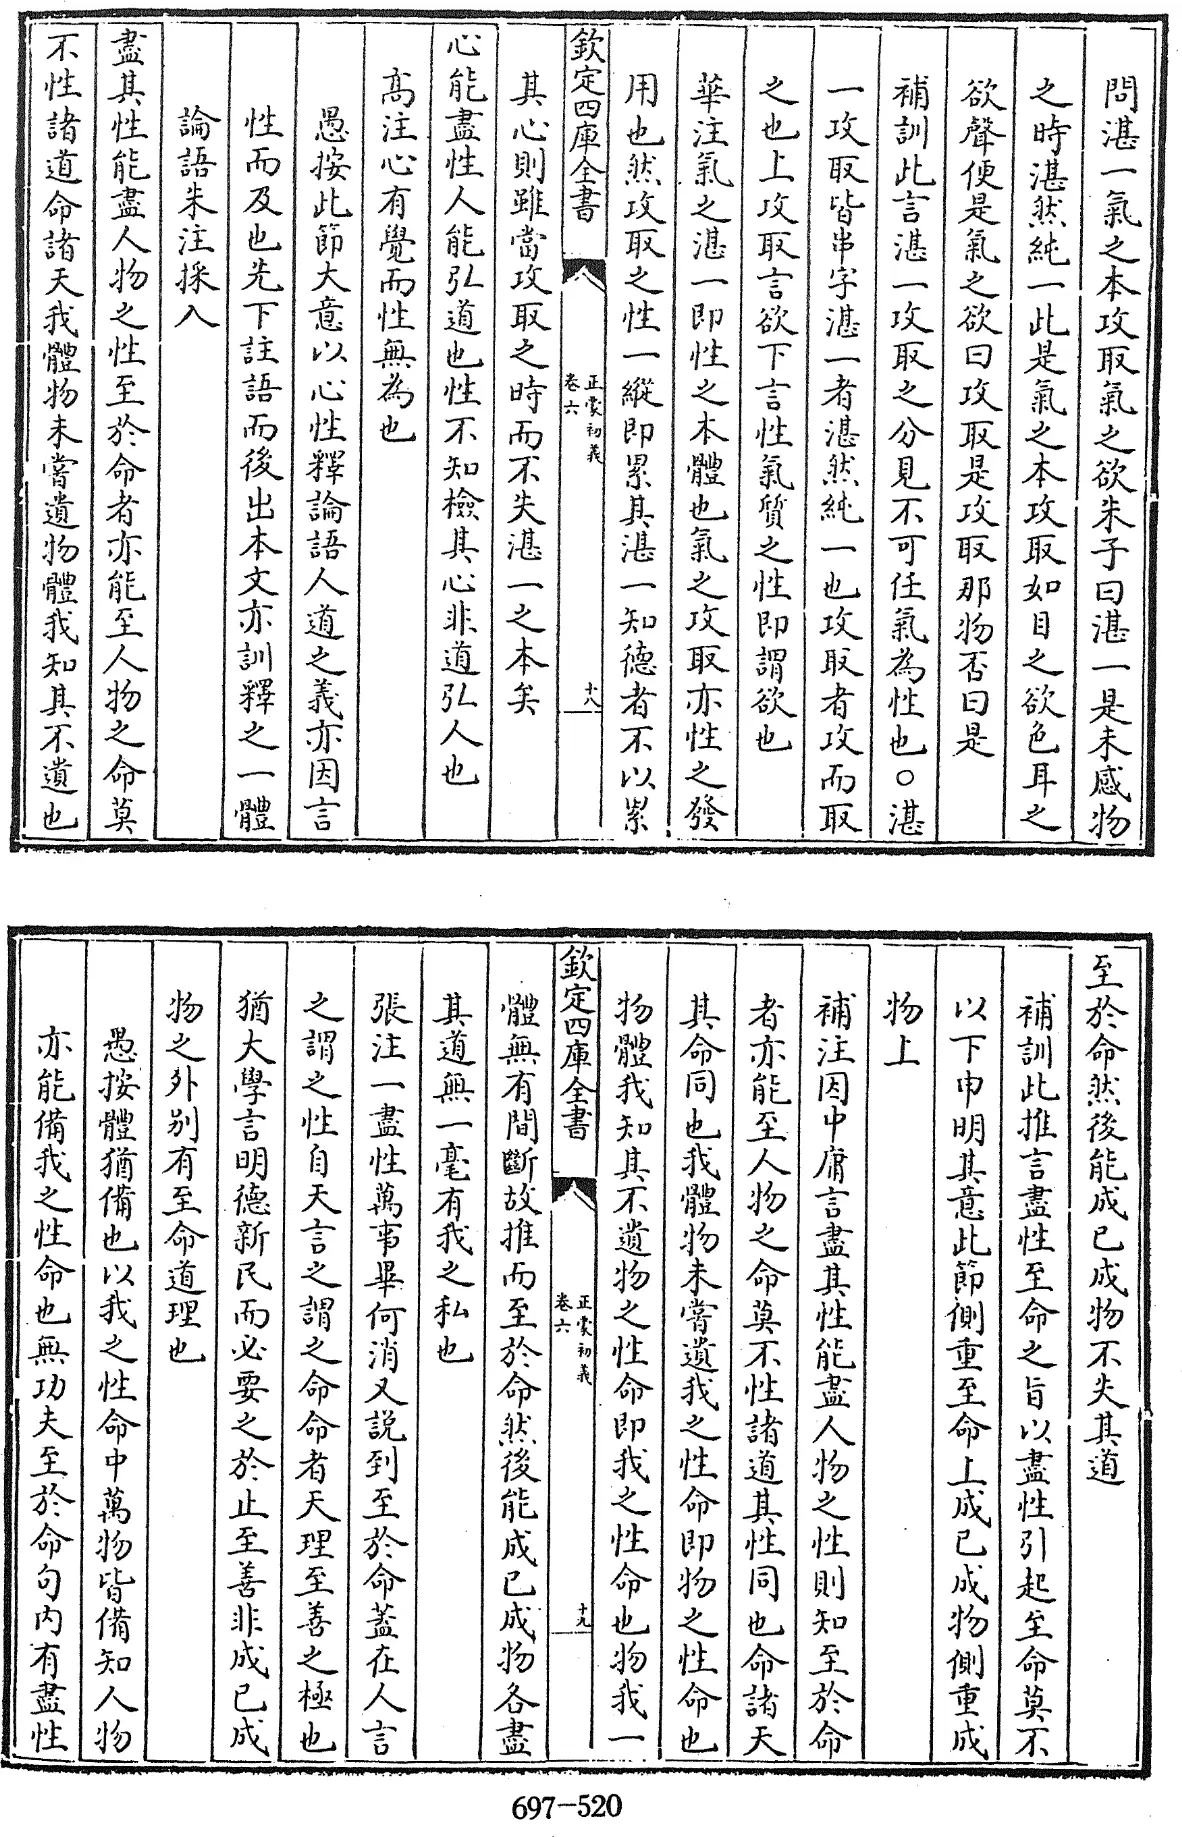 問湛一氣之本攻取氣之欲朱子曰湛一是未感物
之時湛然純一此是氣之本攻取如目之欲色耳之
欲聲便是氣之欲曰攻取是攻取那物否曰是
補訓此言湛一攻取之分見不可任氣為性也○湛
一攻取皆串字湛一者湛然純一也攻取者攻而取
之也上攻取言欲下言性氣質之性即謂欲也
華注氣之湛一即性之本體也氣之攻取亦性之發
用也然攻取之性一縱即累其湛一知德者不以累
欽定四庫全書
正蒙初義
卷六
十八
其心則雖當攻取之時而不失湛一之本矣
心能盡性人能弘道也性不知檢其心非道弘人也
高注心有覺而性無為也
愚按此節大意以心性釋論語人道之義亦因言
性而及也先下註語而後出本文亦訓釋之一體
論語朱注採入
盡其性能盡人物之性至於命者亦能至人物之命莫
不性諸道命諸天我體物未嘗遺物體我知其不遺也
至於命然後能成已成物不失其道
補訓此推言盡性至命之旨以盡性引起至命莫不
以下申明其意此節側重至命上成已成物側重成
物上
補注因中庸言盡其性能盡人物之性則知至於命
者亦能至人物之命莫不性諸道其性同也命諸天
其命同也我體物未嘗遺我之性命即物之性命也
物體我知其不遺物之性命即我之性命也物我一
欽定四庫全書
正蒙初義
卷六
十九
體無有間斷故推而至於命然後能成已成物各盡
其道無一毫有我之私也
張注一盡性萬事畢何消又説到至於命蓋在人言
之謂之性自天言之謂之命命者天理至善之極也
猶大學言明德新民而必要之於止至善非成已成
物之外別有至命道理也
愚按體猶備也以我之性命中萬物皆備知人物
亦能備我之性命也無功夫至於命句内有盡性
697-520